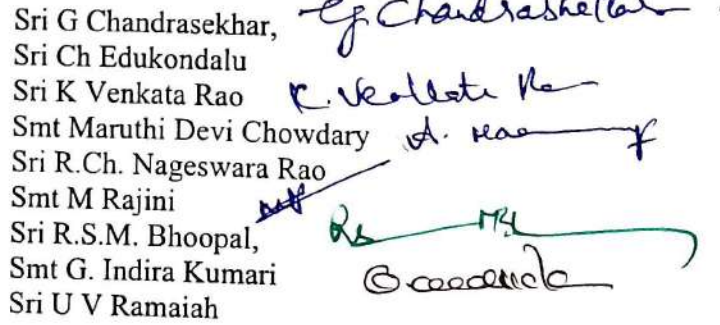 Sri G Chandrasekhar, G Chandrashekar
Sri Ch Edukondalu
Sri K Venkata Rao K. Venkata Rao
Smt Maruthi Devi Chowdary A.
Sri R.Ch. Nageswara Rao
Smt M Rajini
Sri R.S.M. Bhoopal,
Smt G. Indira Kumari
Sri U V Ramaiah